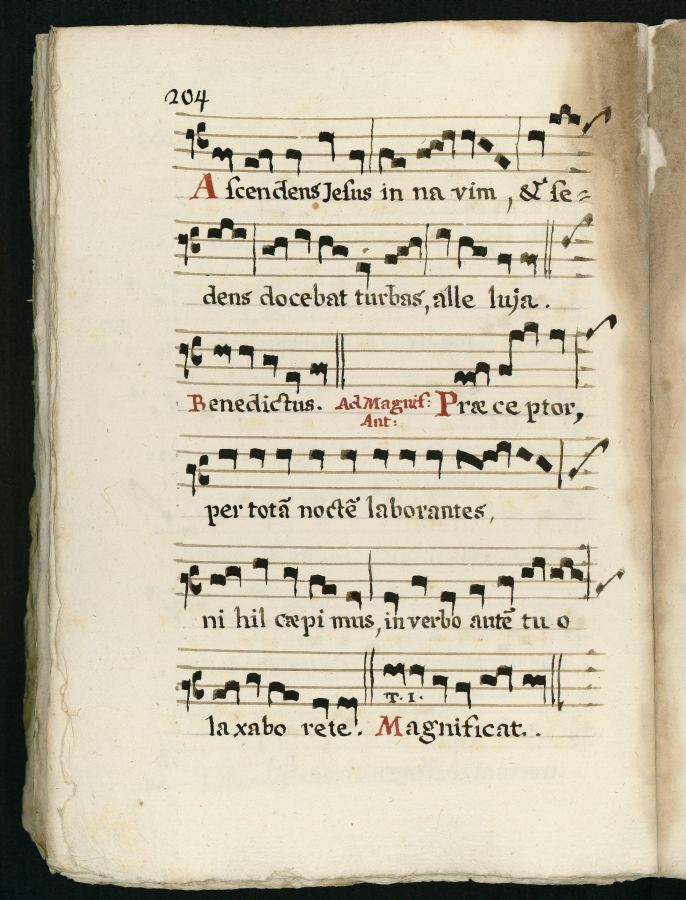 204
Aſcendens Jeſus in na vim, & ſe=
dens docebat turbas, alle luja.
Benedictus. Ad Magnif: Præ ce ptor,
Ant:
per totā noctē laborantes,
ni hil cæpi mus, in verbo autē tu o
T. I.
la xabo rete. Magnificat..